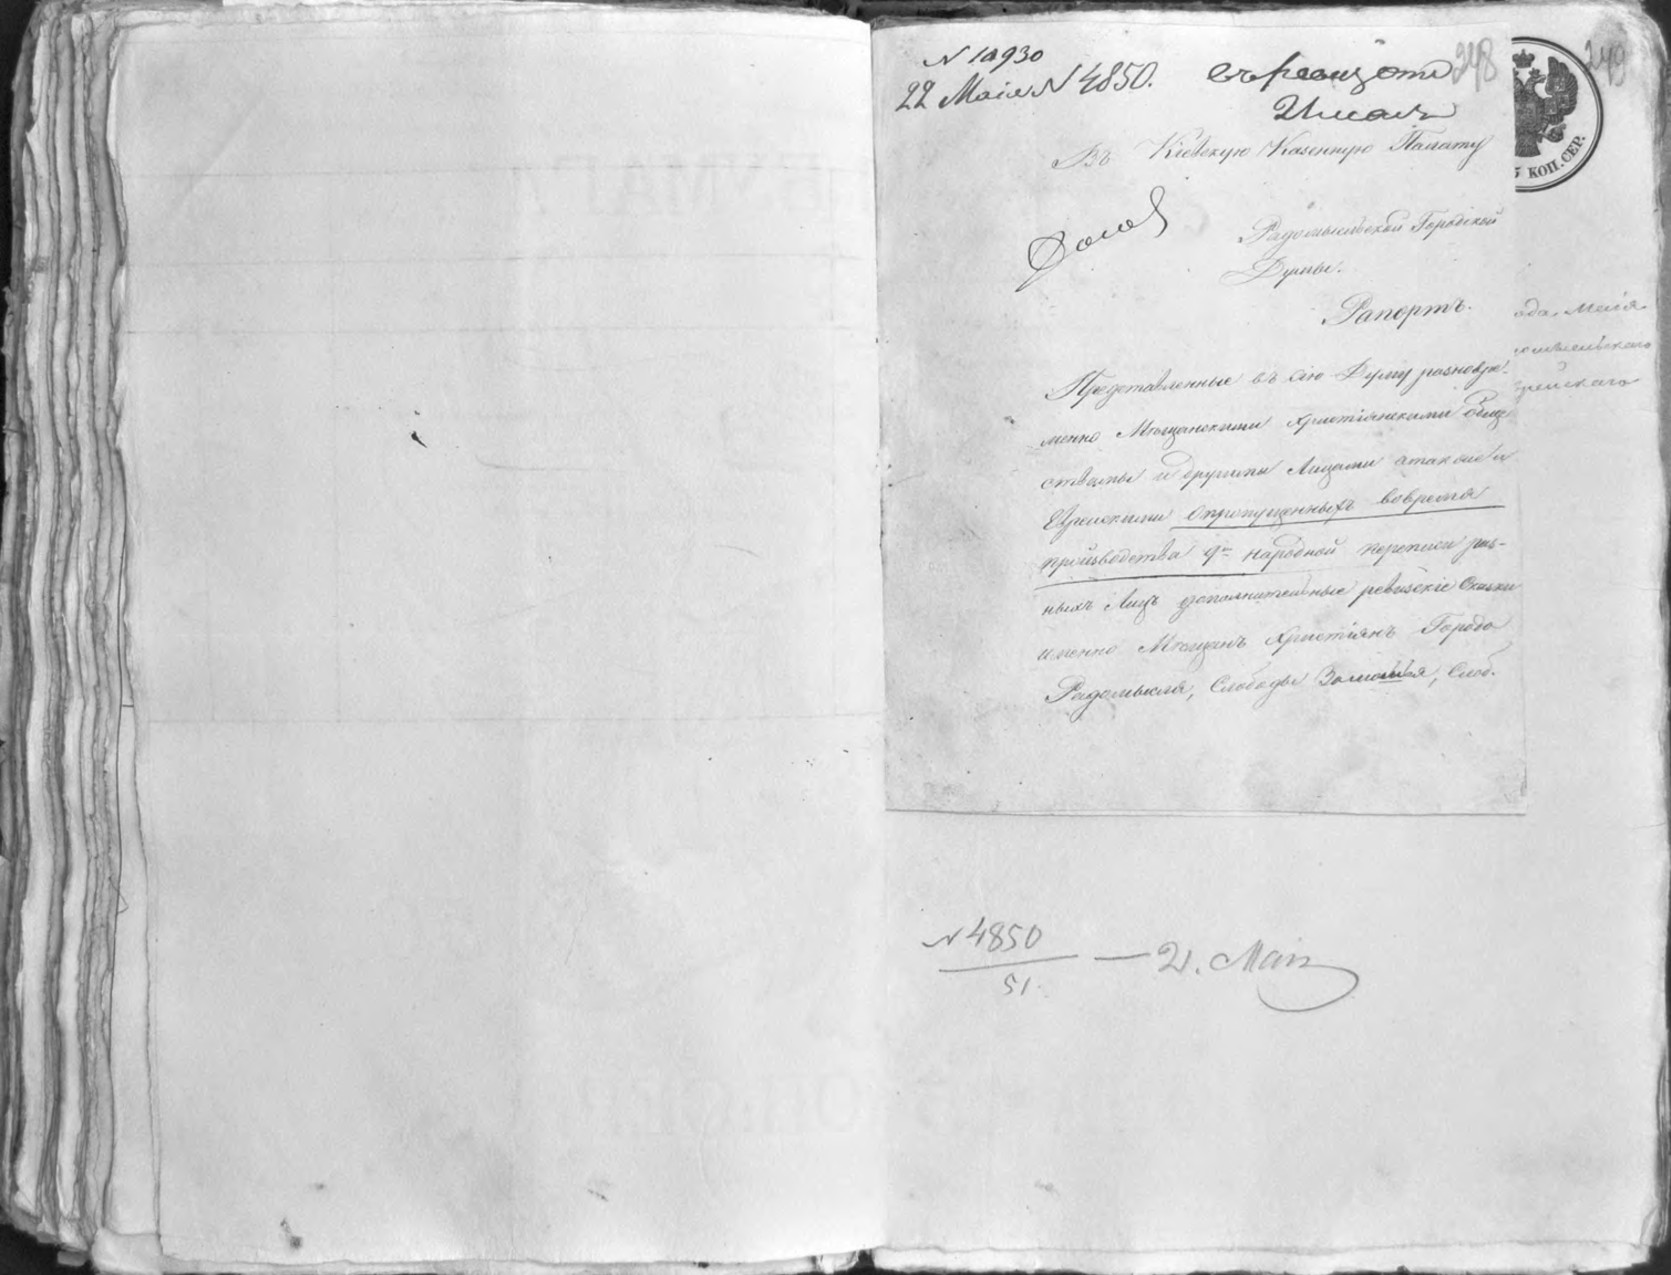 N 10930
22 Маія N 4850.
348
249
Въ Кіевскую Казенную Палату
5 КОП. СЕР.
Радомысльской Городской
Думы.
Рапортъ.
ода Маія
омысльскаго
врейскаго
Представленные въ сію Думу разновре-
менно Мѣщанскими христіянскими Общe
ствамы и другими Лицами атакже и
Еврейскими опропущенныхъ вовремя
производства 9й народной переписи раз-
ныхъ Лицъ дополнительные ревизскіе Сказки
именно Мѣщанъ Христіянъ Города
Радомысля, Слободы Замостья, Слоб.
N 4850
51
— 21. Маія